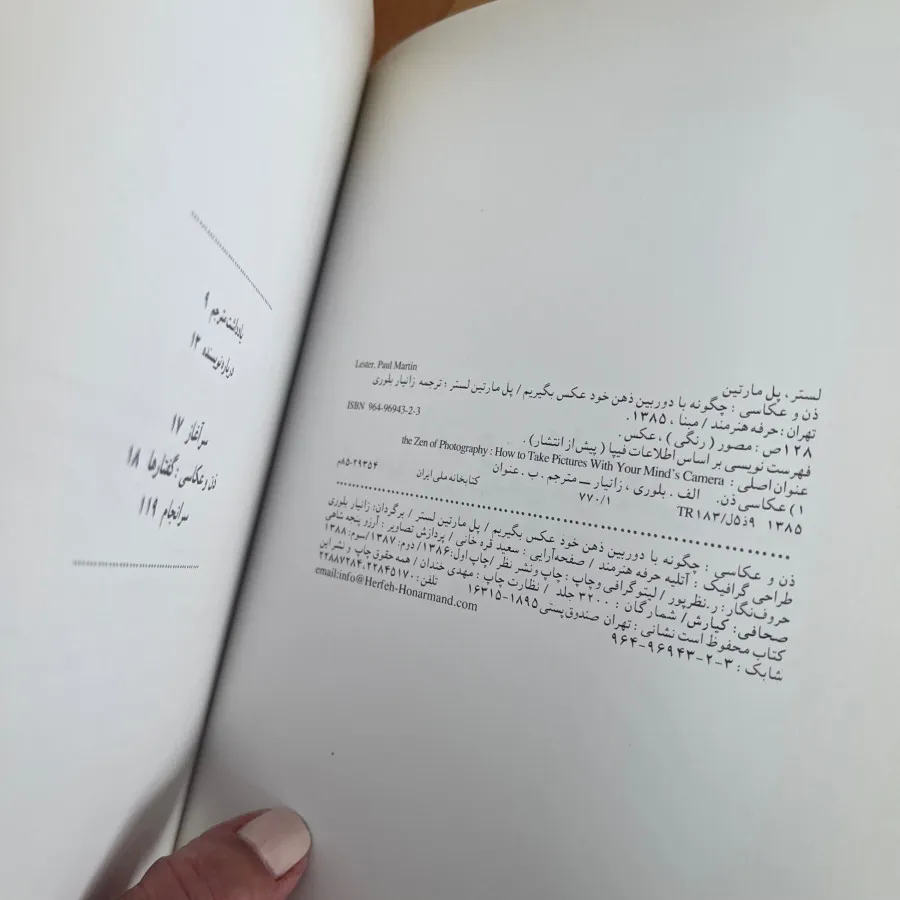 لستر، پل مارتین
Lester, Paul Martin
ذن و عکاسی : چگونه با دوربین ذهن خود عکس بگیریم / پل مارتین لستر ؛ ترجمه زانیار بلوری
تهران : حرفه هنرمند / مبنا ، ۱۳۸۵.
ISBN 964-96943-2-3
۱۲۸ص : مصور ( رنگی ) ، عکس.
فهرست نویسی بر اساس اطلاعات فیپا ( پیش از انتشار ) .
عنوان اصلی : the Zen of Photography : How to Take Pictures With Your Mind's Camera
۱ ) عکاسی ذن. الف . بلوری ، زانیار ــ مترجم . ب . عنوان
۱۳۸۵ ۹ذ۵ل/ TR۱۸۳
۷۷۰/۱
کتابخانه ملی ایران
۸۵-۲۹۳۵۴م
ذن و عکاسی : چگونه با دوربین ذهن خود عکس بگیریم / پل مارتین لستر / برگردان: زانیار بلوری
طراحی گرافیک : آتلیه حرفه هنرمند / صفحه‌آرایی : سعید فره خانی / پردازش تصاویر : آرزو پنجه شاهی
حروف‌نگار: ر.نظرپور / لیتوگرافی و چاپ : چاپ و نشر نظر /چاپ اول:۱۳۸۶/ دوم:۱۳۸۷/سوم:۱۳۸۸
صحافی: کیارش/ شمارگان : ۳۲۰۰ جلد / نظارت چاپ : مهدی خندان / همه حقوق چاپ و نشر این
کتاب محفوظ است نشانی : تهران صندوق پستی ۱۸۹۵-۱۶۳۱۵ تلفن: ۲۲۸۸۷۲۸۴،۲۲۸۴۵۱۷۰
شابک : ۳-۲-۹۶۹۴۳-۹۶۴ email:info@Herfeh-Honarmand.com
یادداشت مترجم ۹
درباره نویسنده ۱۳
سرآغاز ۱۷
ذن و عکاسی : گفتارها ۱۸
سرانجام ۱۱۹